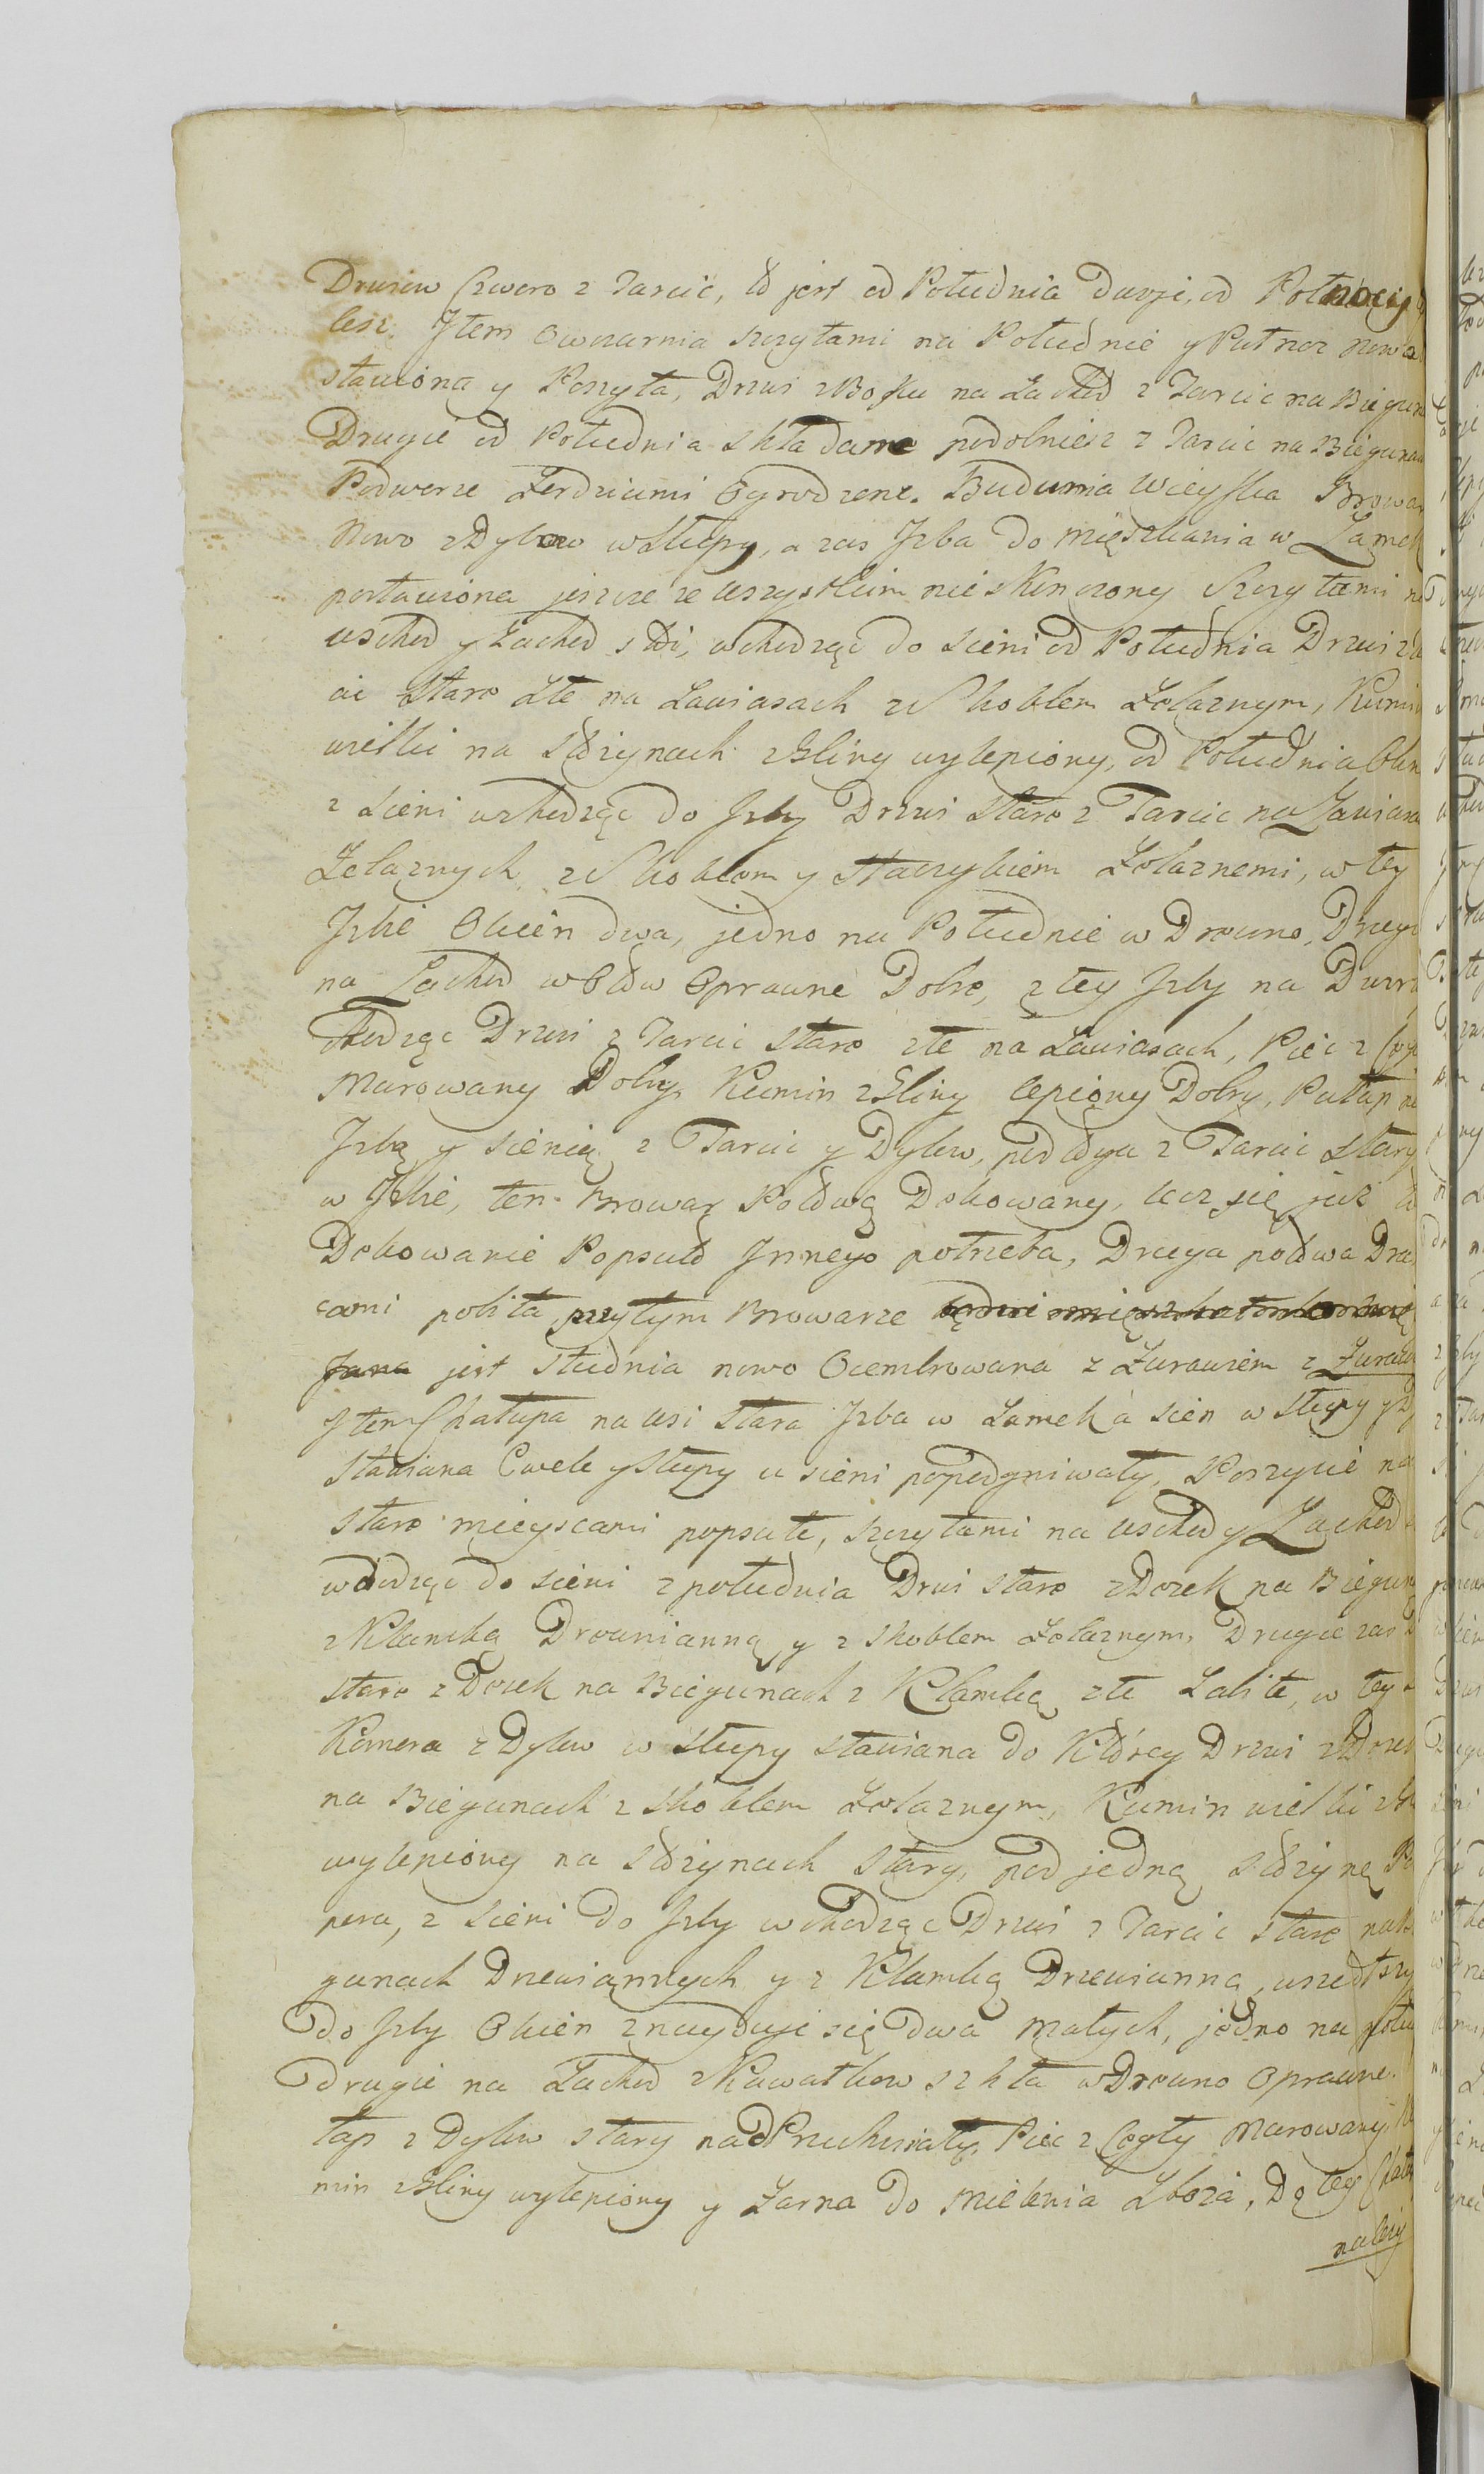 Drzwiow Czworo z Tarcic, to jest od Południa Dwoje, od Połnocy
tesz. Item Owczarnia szczytami na Południe y Pułnoc nowo
stawiona y Poszyta, Drzwi z Boku na Zachod z Tarcic na Biegun
Drugie od Południa składane podobniesz z Tarcic na Biegunach
Podworze Zerdziami Ogrodzone. Budunia Wieyska Browar
Nowo z Dylow w Słupy, a zas Izba do Mięszkania w Zamek
postawiona jeszcze ze wszystkim nieskonczony Szczytami na
wschod y Zachod stoi, wchodząc do Sieni od Południa Drzwi z
cic Stare Złe na Zawiasach z Skoblem Zelaznym, Kumin
wielki na Stożynach z Gliny wylepiony, od Południa Okn
z Sieni wchodząc do Izby Drzwi Stare z Tarcic na Zawiasa
Zelaznych z Skoblem y Haczykiem Zelaznemi, w tey
Izbie Okien dwa, jedno na Południe w Drewno, Drugie
na Zachod w Ołow Oprawne Dobre, z tey Izby na Dwor
chodząc Drzwi z Tarcic Stare złe na Zawiasach, Piec z Ceg
Murowany Dobry, Kumin z Gliny lepiony Dobry, Pułap na
Izbą y Sienią z Tarcic y Dylow, podłoga z Tarcic Stary
w Izbie, ten Browar Połową Dekowany, lecz się już to
Dekowanie Popsuło Innego potrzeba, Druga połowa Dra
cami pobita, przytym Browarze
jest Studnia nowo Ocembrowana z Zurawiem z Zuraw
Item Chałupa na wsi Stara Izba w Zamek a Sien w Słupy
Stawiana Cwele y Słupy u Sieni popodgniwały, Poszycie na
Stare mieyscami popsute, szczytami na wschod y Zachod
wchodząc do Sieni z południa Drzwi Stare z Dosek na Biegun
z Klamką Drewnianną y z Skoblem Zelaznym, Drugie zas
Stare z Dosek na Biegunach z Klamką złe Zabite, w tey
Komora z Dylow w Słupy stawiana do Ktorey Drzwi z Dosek
na Biegunach z Skoblem Zelaznym, Kumin wielki z
wylepiony na Stożynach Stary, pod jedną Stożyną Po
pora, z Sieni do Izby wchodząc Drzwi z Tarcic Stare na Bie
gunach Drzewiannych y z Klamką Drzewianną, wszedłszy
do Izby Okien znayduje się Dwa Małych, jedno na połu
drugie na Zachod z Kawałkow szkła w Drewno Oprawne.
łap z Dylow Stary nadPruchniały, Piec z Cegły Murowany, Ku
min z Gliny wylepiony y Zarna do Mielenia Zboża, Do tey Chału
należy